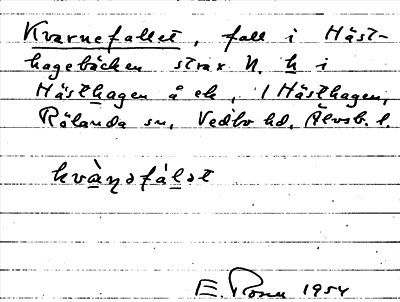 Kvarnefallet, fall i Häst-
hagebäcken strax N. h i
Hästhagen å ek, i Hästhagen,
Rölanda sn, Vedbo hd, Älvsb. l.
kvà̱ṇəfáḻət
E. 1954